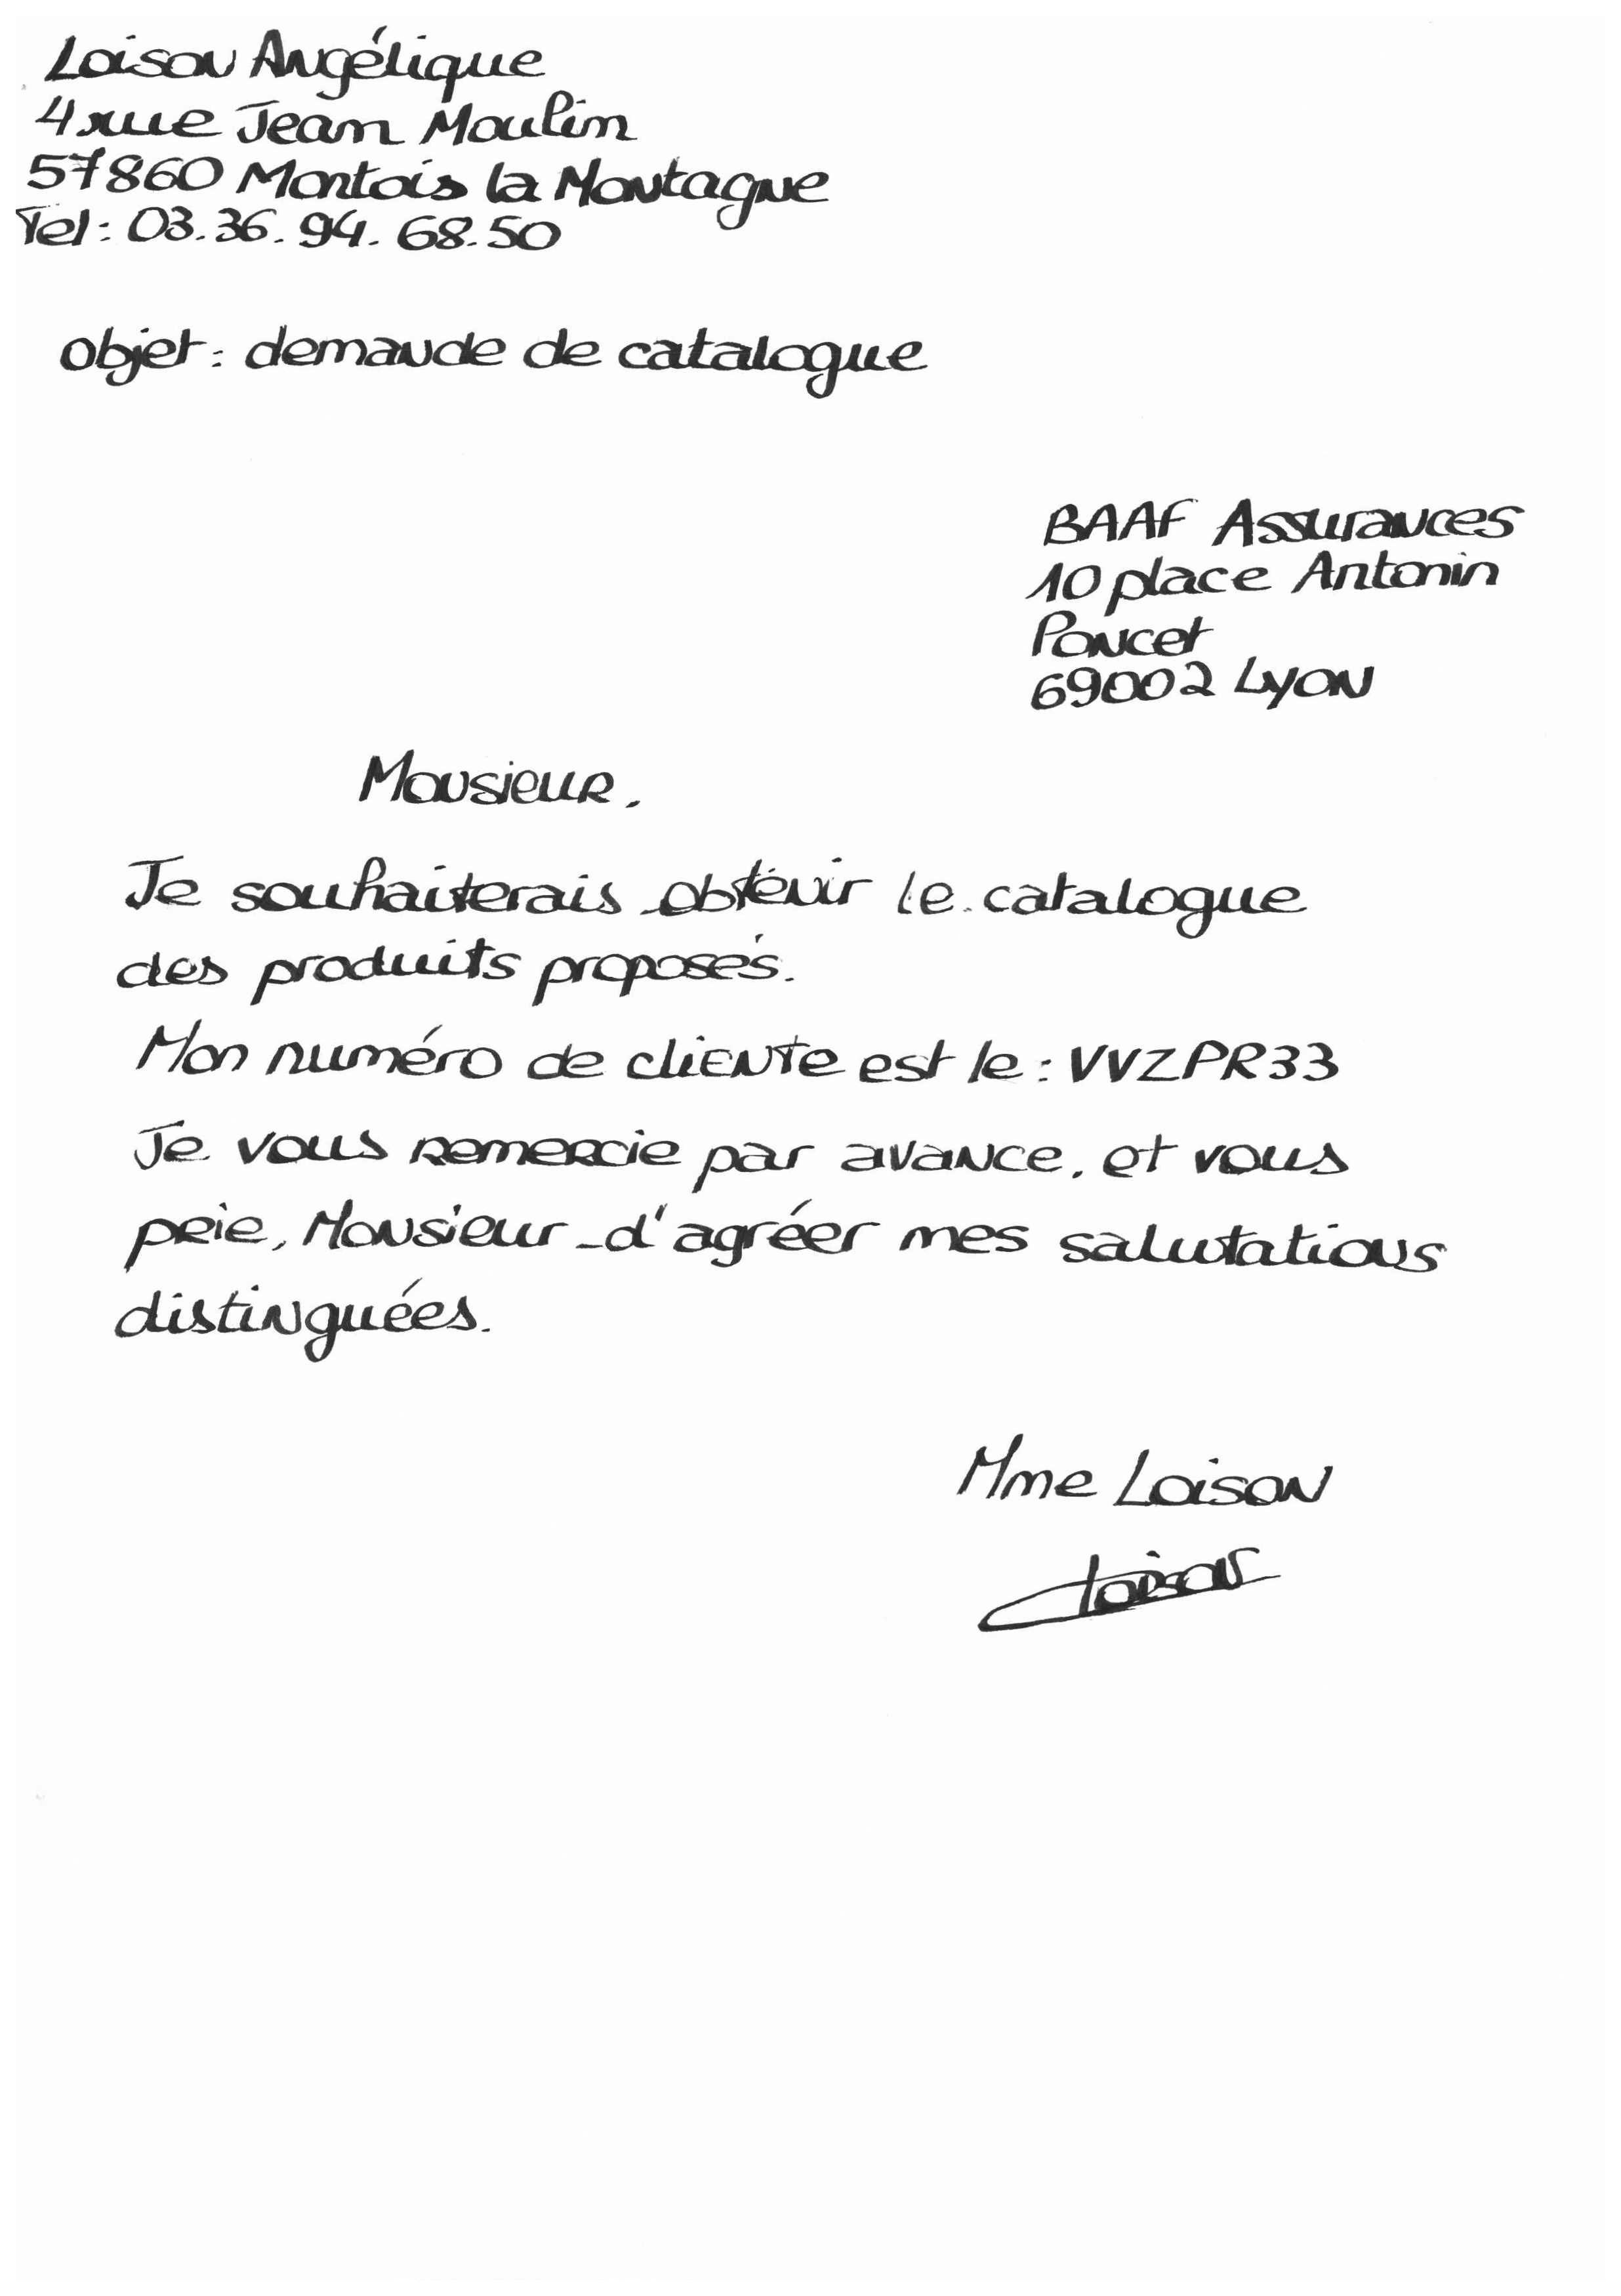 Loison Angélique
4 rue Jean Moulin
57860 Montois la Montagne
Tel : 03.36.94.68.50
objet : demande de catalogue
BAAF Assurances
10 place Antonin
Poncet
69002 Lyon
Monsieur,
Je souhaiterais obtenir le catalogue
des produits proposés.
Mon numéro de cliente est le : VVZPR33
Je vous remercie par avance, et vous
prie, Monsieur d'agréer mes salutations
distinguées.
Mme Loison
Loison